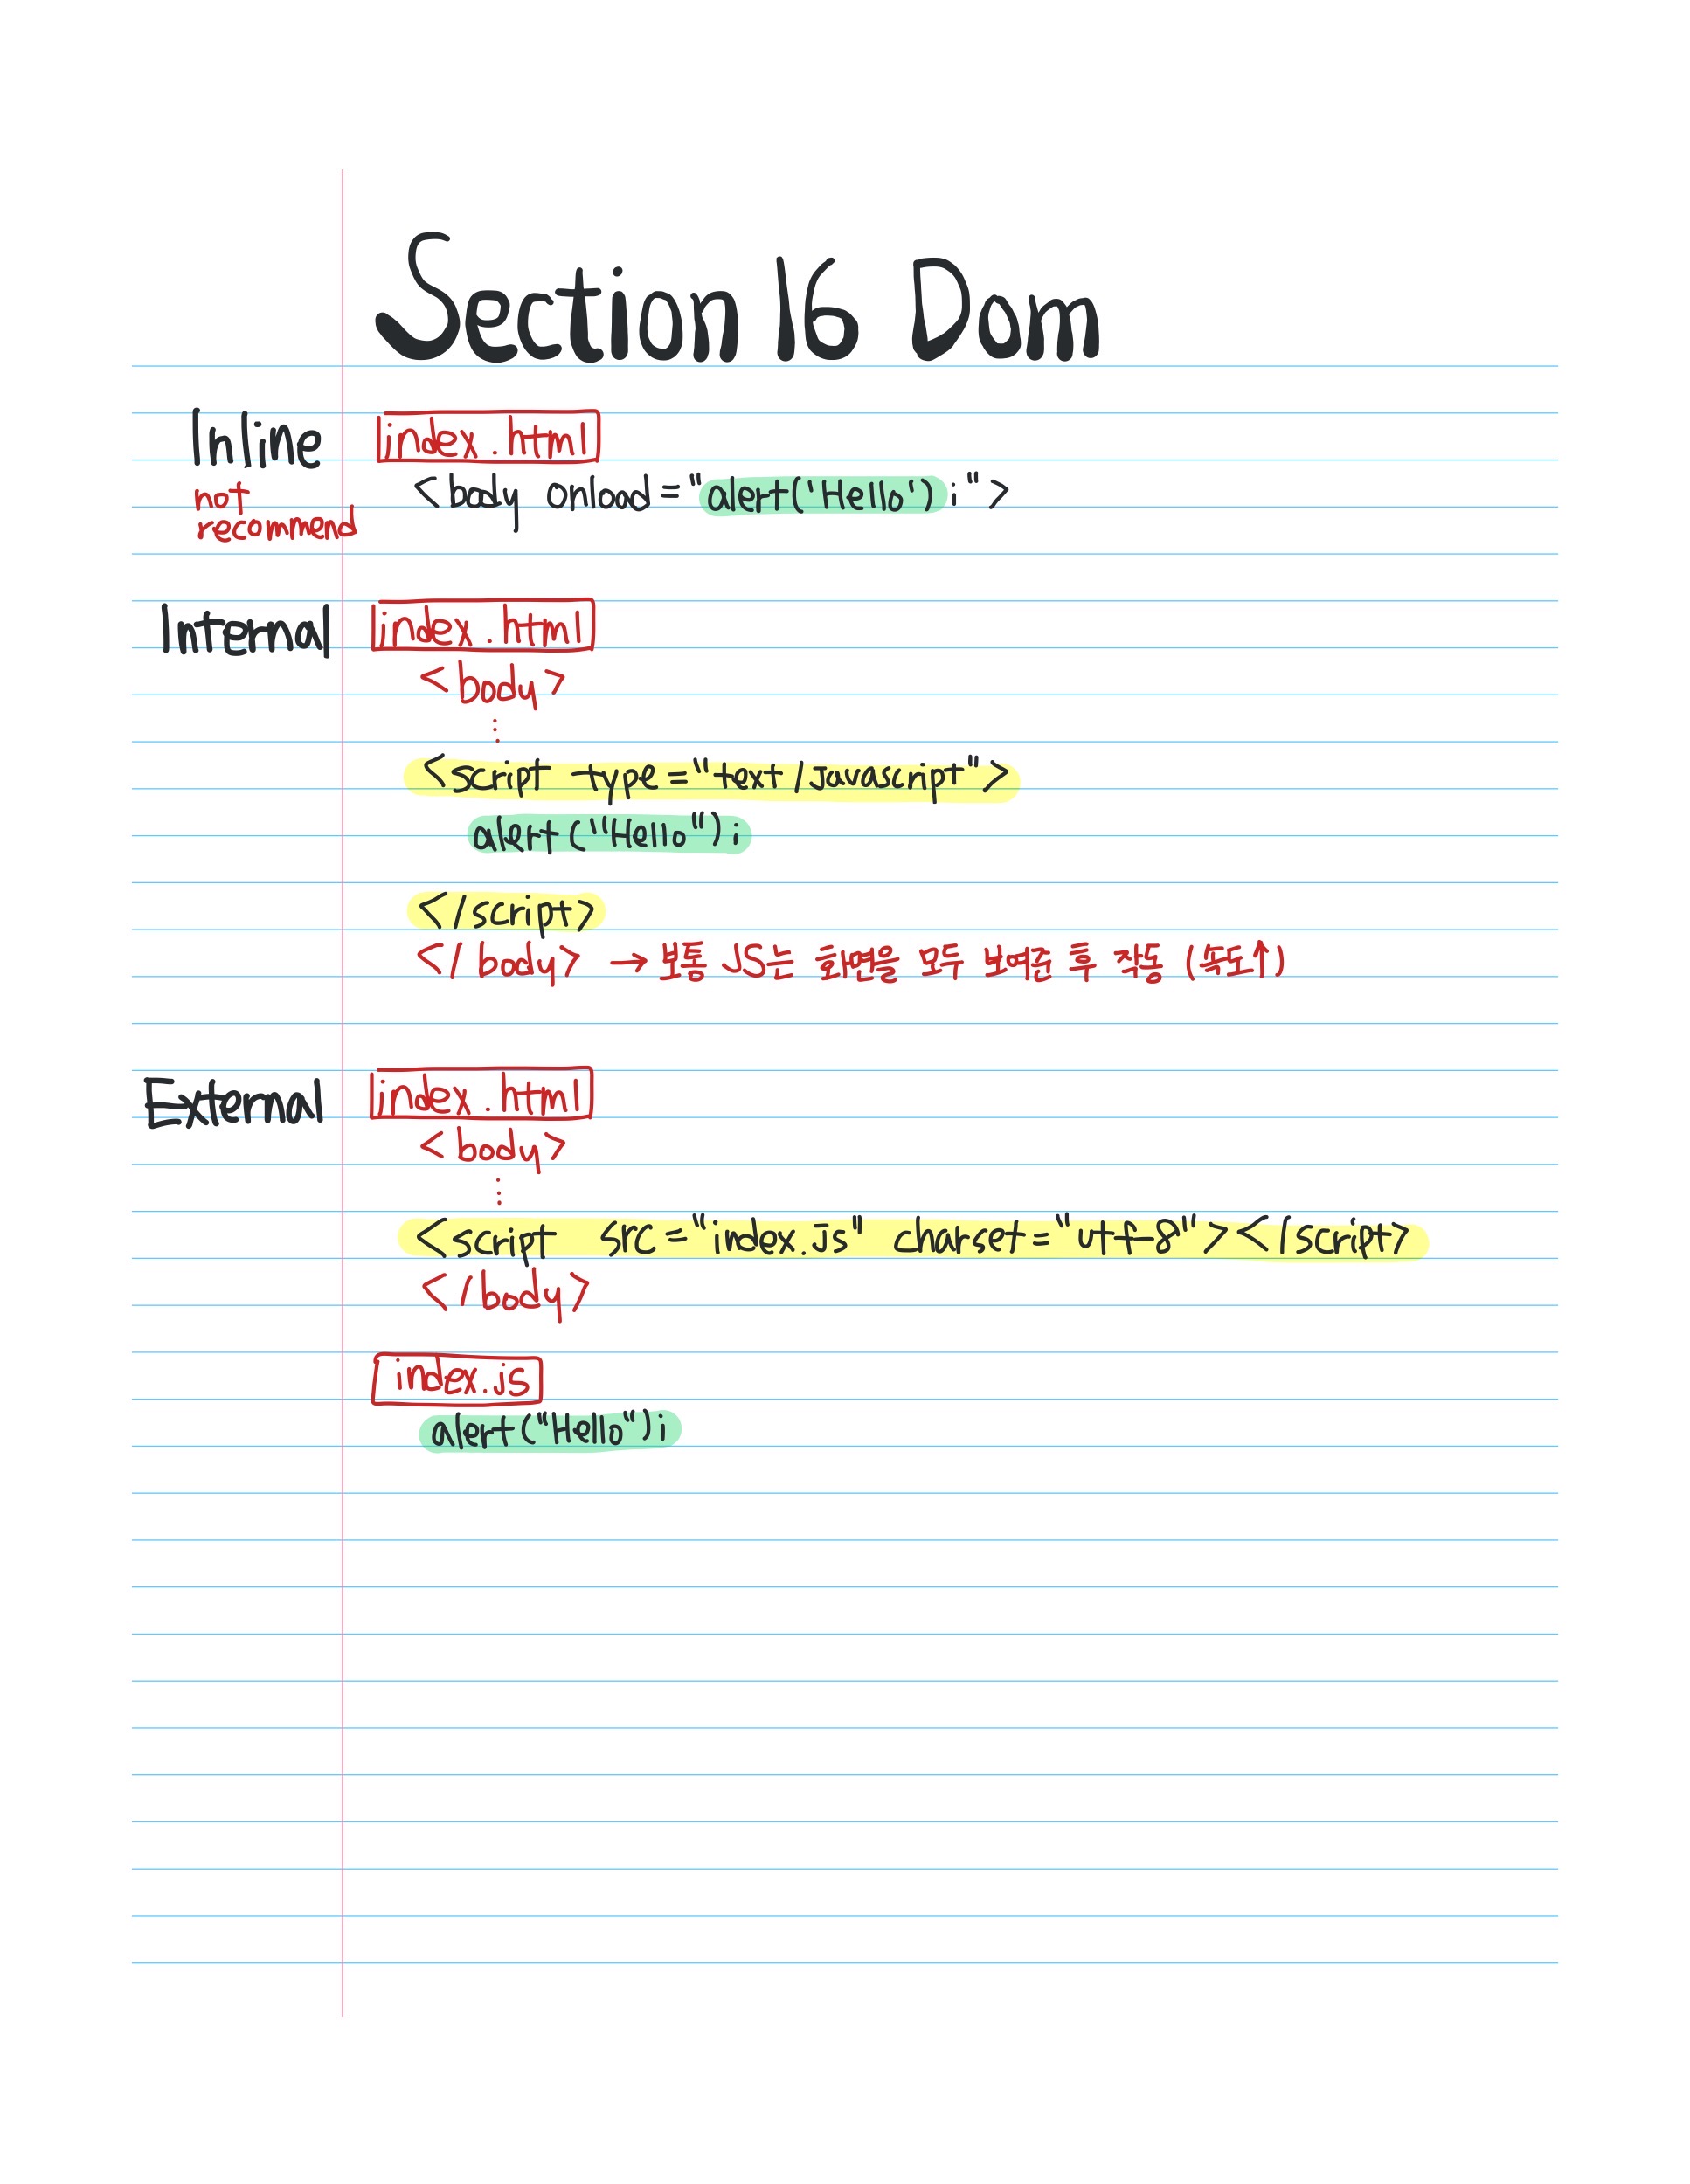 Section 16 Dom
Inline
not
recommend
index.html
<body onload="alert('Hello');">
Internal
index.html
<body>
⋮
<script type="text/Javascript">
alert("Hello");
</script>
</body> → 보통 JS는 화면을 모두 보여준 후 작동 (속도↑)
External
index.html
<body>
⋮
<script src="index.js" charset="utf-8"></script>
</body>
index.js
alert("Hello");